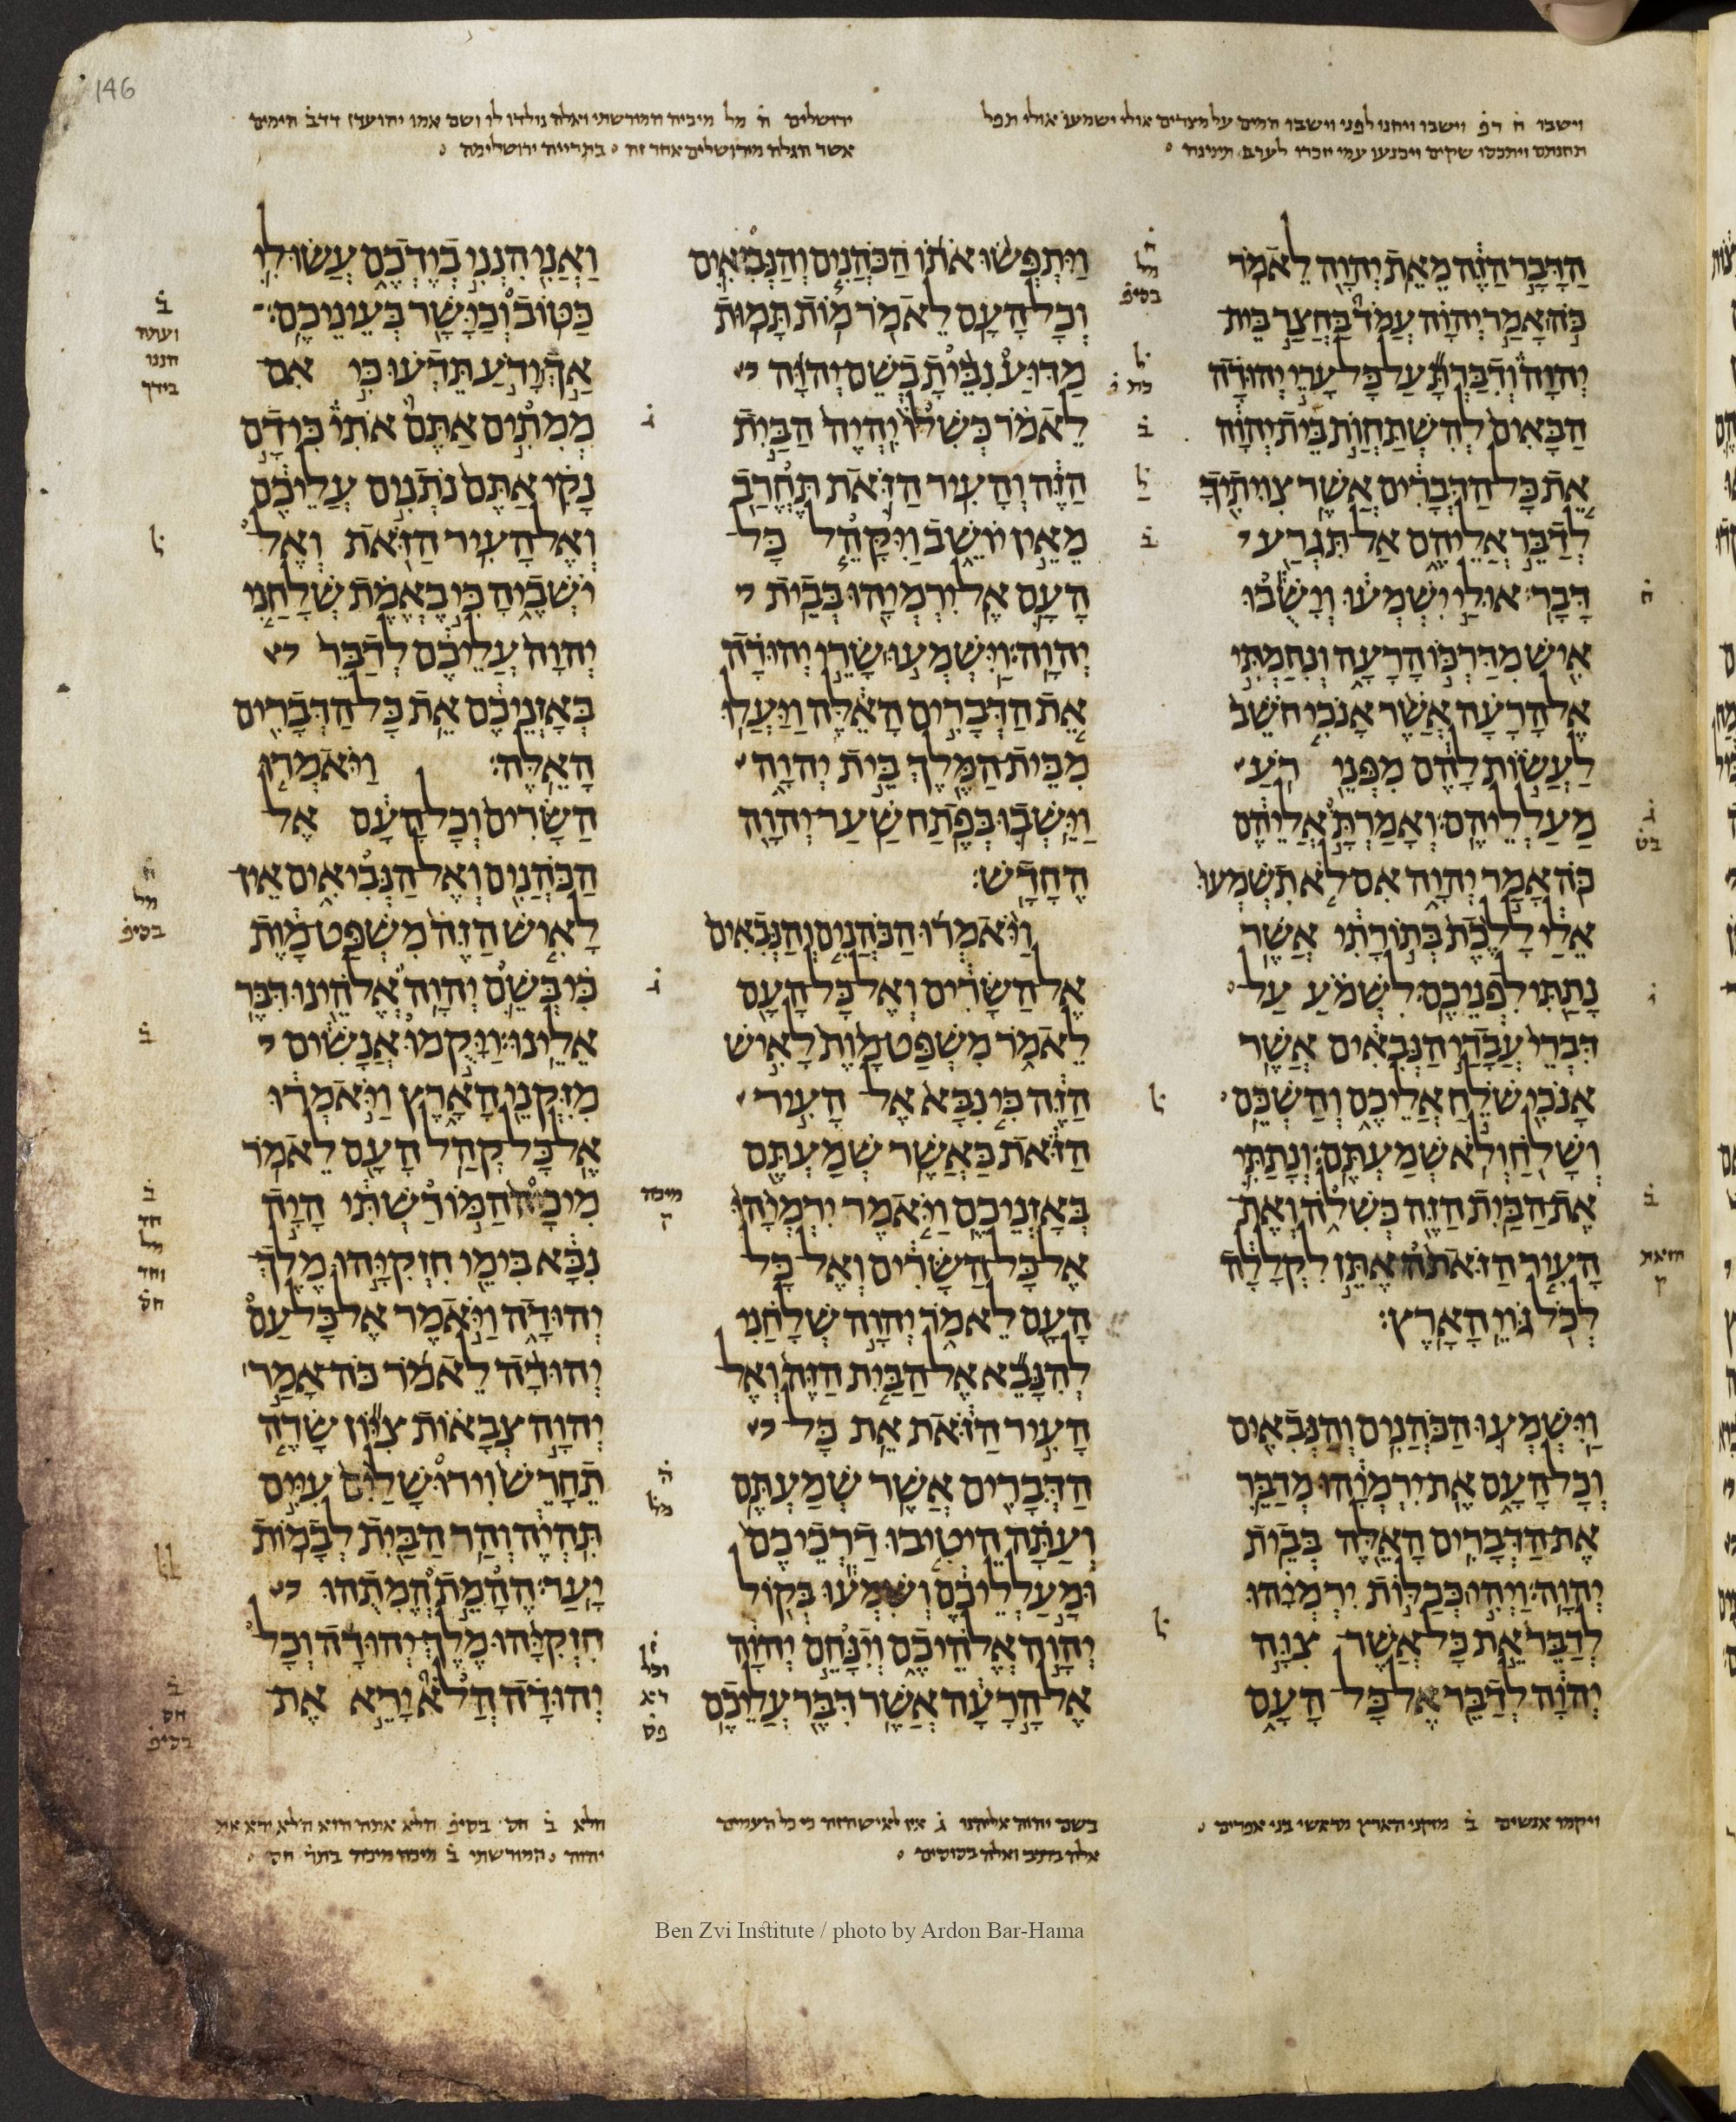 146
וישבו ח̇ רפ̇ וישבו ויחנו לפני וישבו המים על מצרים אולי ישמעו אולי תפל
תחנתם ויתכסו שקים ויכנעו עמי
ירושלים ה̇ מל מיכיה המורשתי ואלה נולדו לו ושם אמו יהועדן דדב̇ הימים
אשר הגלה מירושלים אחר זה בתרייה ירושלימה
הדבר הזה מאת יהוה לאמר
כה אמר יהוה עמד בחצר בית
יהוה ודברת על כל ערי יהודה
הבאים להשתחות בית יהוה
את כל הדברים אשר צויתיך
לדבר אליהם אל תגרע
דבר׃ אולי ישמעו וישבו
איש מדרכו הרעה ונחמתי
אל הרעה אשר אנכי חשב
לעשות להם מפני רע
מעלליהם׃ ואמרת אליהם
כה אמר יהוה אם לא תשמעו
אלי ללכת בתורתי אשר
נתתי לפניכם׃ לשמע על
דברי עבדי הנבאים אשר
אנכי שלח אליכם והשכם
ושלח ולא שמעתם׃ ונתתי
את הבית הזה כשלה ואת
העיר הזאתה אתן לקללה
לכל גויי הארץ׃
וישמעו הכהנים והנבאים
וכל העם את ירמיהו מדבר
את הדברים האלה בבית
יהוה׃ ויהי ככלות ירמיהו
לדבר את כל אשר צוה
יהוה לדבר אל כל העם
ותפשו אתו הכהנים והנביאים
וכל העם לאמר מות תמות
מדוע נבית בשם יהוה
לאמר כשלו יהיה הבית
הזה והעיר הזאת תחרב
מאין יושב ויקהל כל
העם אל ירמיהו בבית
יהוה׃ וישמעו שרי יהודה
את הדברים האלה ויעלו
מבית המלך בית יהוה
וישבו בפתח שער יהוה
החדש׃
ויאמרו הכהנים והנבאים
אל השרים ואל כל העם
לאמר משפט מות לאיש
הזה כי נבא אל העיר
הזאת כאשר שמעתם
באזניכם ויאמר ירמיהו
אל כל השרים ואל כל
העם לאמר יהוה שלחני
להנבא אל הבית הזה ואל
העיר הזאת את כל
הדברים אשר שמעתם
ועתה היטיבו דרכיכם
ומעלליכם ושמעו בקול
יהוה אלהיכם וינחם יהוה
אל הרעה אשר דבר עליכם
ואני הנני בידכם עשו לי
כטוב וכישר בעיניכם׃
אך ידע תדעו כי אם
ממתים אתם אתי כי דם
נקי אתם נתנים עליכם
ואל העיר הזאת ואל
ישביה כי באמת שלחני
יהוה עליכם לדבר
באזניכם את כל הדברים
האלה׃ ויאמרו
השרים וכל העם אל
הכהנים ואל הנביאים אין
לאיש הזה משפט מות
כי בשם יהוה אלהינו דבר
אלינו׃ ויקמו אנשים
מזקני הארץ ויאמרו
אל כל קהל העם לאמר
מיכיה המורשתי היה
נבא בימי חזקיהו מלך
יהודה ויאמר אל כל עם
יהודה לאמר כה אמר
יהוה צבאות ציון שדה
תחרש וירושלים עיים
תהיה והר הבית לבמות
יער׃ ההמת המתהו
חזקיהו מלך יהודה וכל
יהודה הלא ירא את
ויקמו אנשים ב̇ מזקני הארץ מראשי בני אפרים
בשם יהוה אלהינו ג̇ אין לאיש הזה כי כל העמים
אלה ברכב ואלה בסוסים
הלא ב̇ חס̇ בסיפ̇ הלא אתה הוא הלא ירא את
יהוה המורשתי ב̇ מיכה מיכה בתר̇ חס̇
Ben Zvi Institute / photo by Ardon Bar-Hama